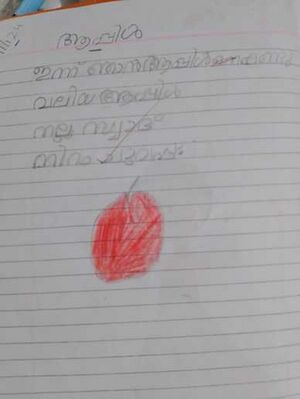 ആപ്പിൾ
ഇന്ന് ഞാൻ ആപ്പിൾ
വലിയ ആപ്പിൾ
നല്ല സ്വാദ്
നിറം ചുവപ്പ്